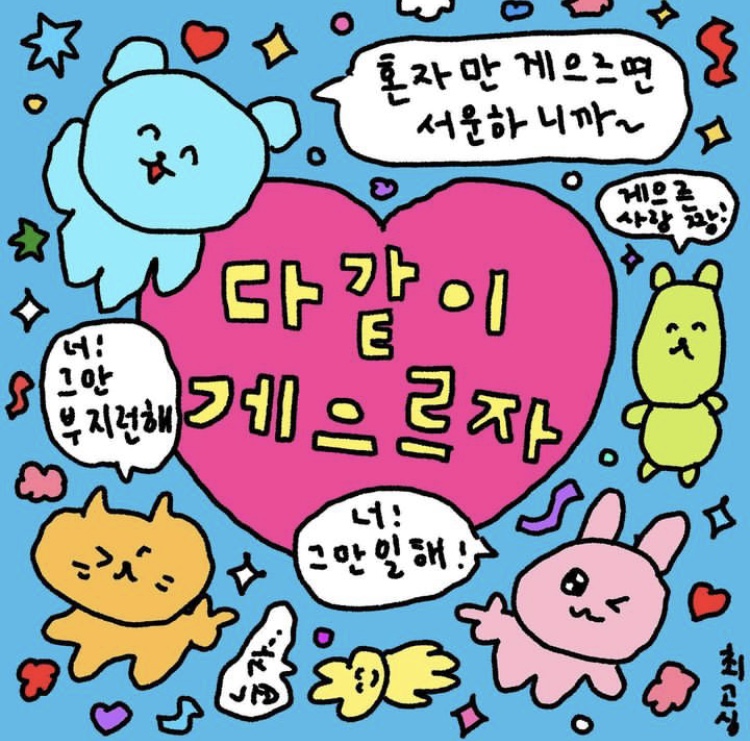 혼자만 게으르면
서운하니까~
게으른
사람 짱!
다같이
게으르자
너!
그만
부지런해
너!
그만일해!
최고심